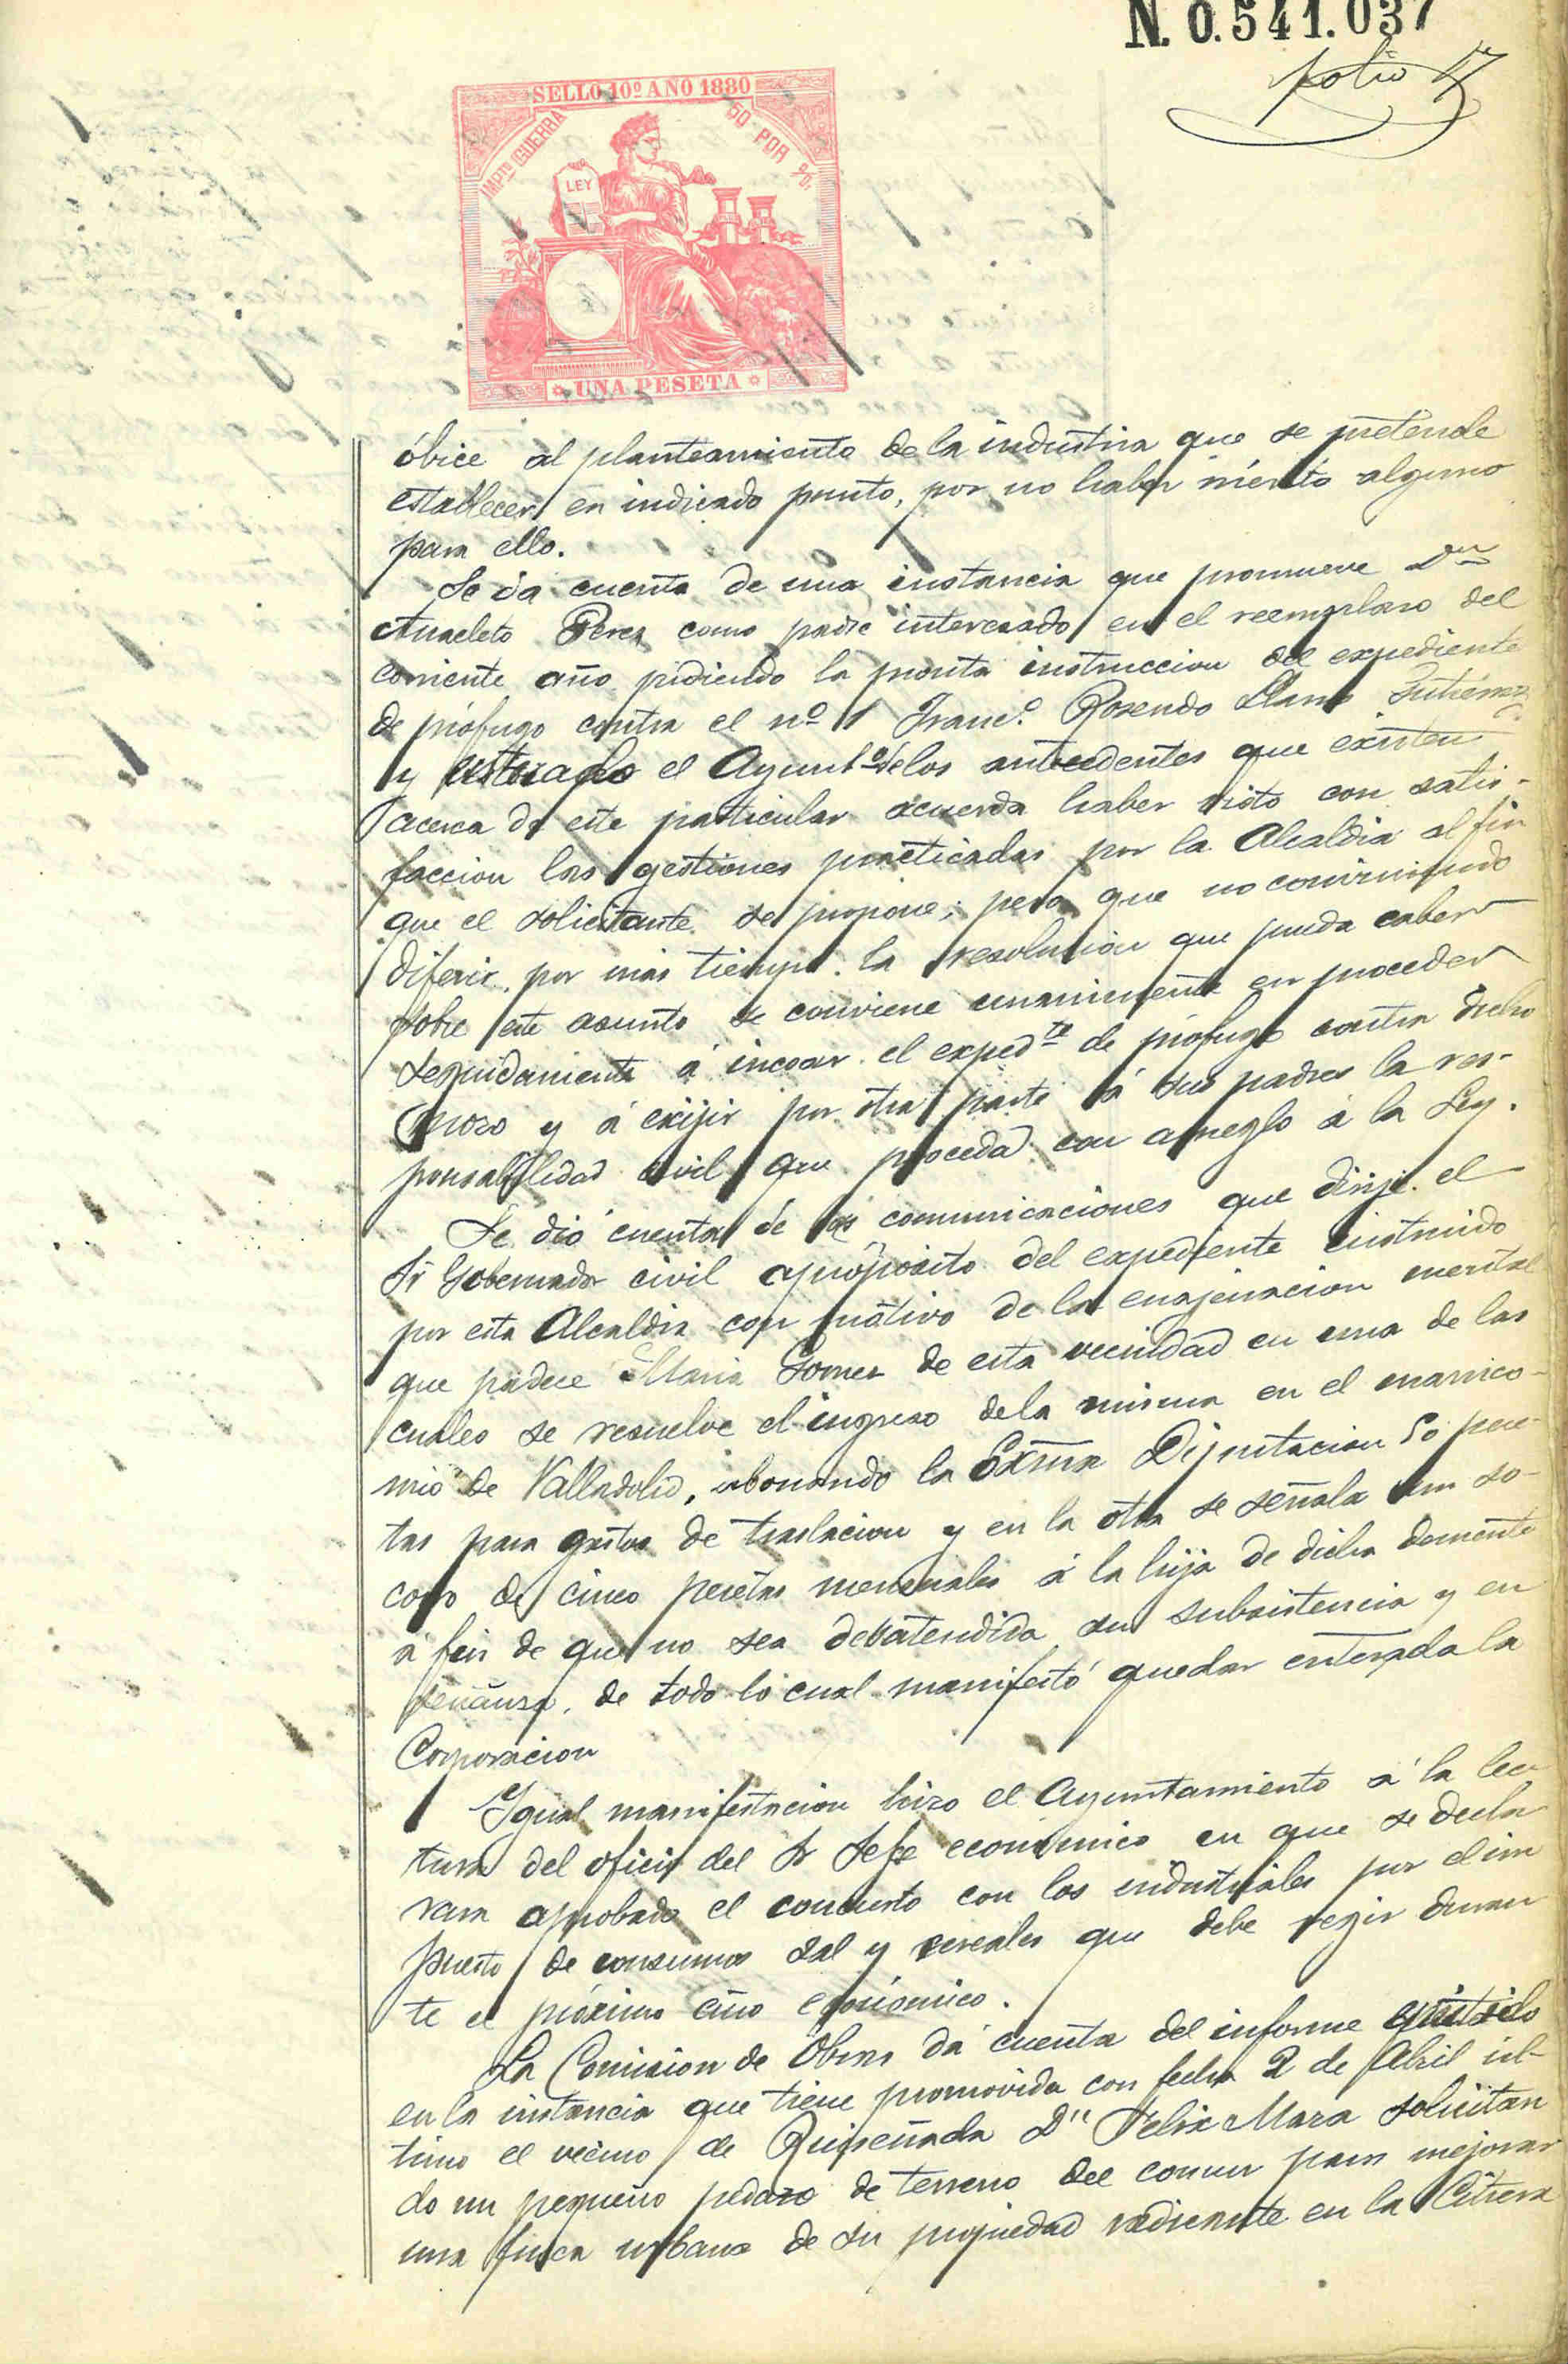 N. 0.541.037
folio 17
SELLO 10º AÑO 1880
IMPTO GUERRA 50 POR %.
LEY
UNA PESETA
óbice al planteamiento de la industria que se pretende
establecer en indicado punto, por no haber mérito alguno
para ello.
Se da cuenta de una instancia que promueve Dn
Anacleto Perez como padre interesado en el reemplazo del
corriente año pidiendo la pronta instruccion del expediente
de prófugo contra el nº 1 Francº Rosendo Llano Gutierrez
y enterado el Ayuntº de los antecedentes que existen
acerca de este particular acuerda haber visto con satis-
faccion las gestiones practicadas por la Alcaldia al fin
que el solicitante se propone; pero que no conviniendo
diferir por mas tiempo la resolucion que pueda caber
sobre este asunto se conviene unanimemente en proceder
seguidamente á incoar el expedte de prófugo contra dicho
mozo y á exijir por otra parte á sus padres la res-
ponsabilidad civil que proceda con arreglo á la Ley.
Se dió cuenta de las comunicaciones que dirije el
Sr Gobernador civil apropósito del expediente instruido
por esta Alcaldia con motivo de la enajenacion mental
que padece Maria Gomez de esta vecindad en una de las
cuales se resuelve el ingreso dela misma en el manico-
mio de Valladolid, abonando la Exma Diputacion 50 pese-
tas para gastos de traslacion y en la otra se señala un so-
corro de cinco pesetas mensuales á la hija de dicha demente
a fin de que no sea desatendida su subsistencia y en
señanza, de todo lo cual manifestó quedar enterada la
Corporacion
Igual manifestacion hizo el Ayuntamiento á la lec
tura del oficio del Sr Jefe económico en que se decla
rara aprobado el concierto con los industriales por el im
puesto de consumos sal y cereales que debe regir duran
te el próximo año económico.
La Comision de Obras dá cuenta del informe emitido
en la instancia que tiene promovida con fecha 2 de Abril úl-
timo el vecino de Dn Felix Maza solicitan
do un pequeño pedazo de terreno del comun para mejorar
una finca urbana de su propiedad radicante en la